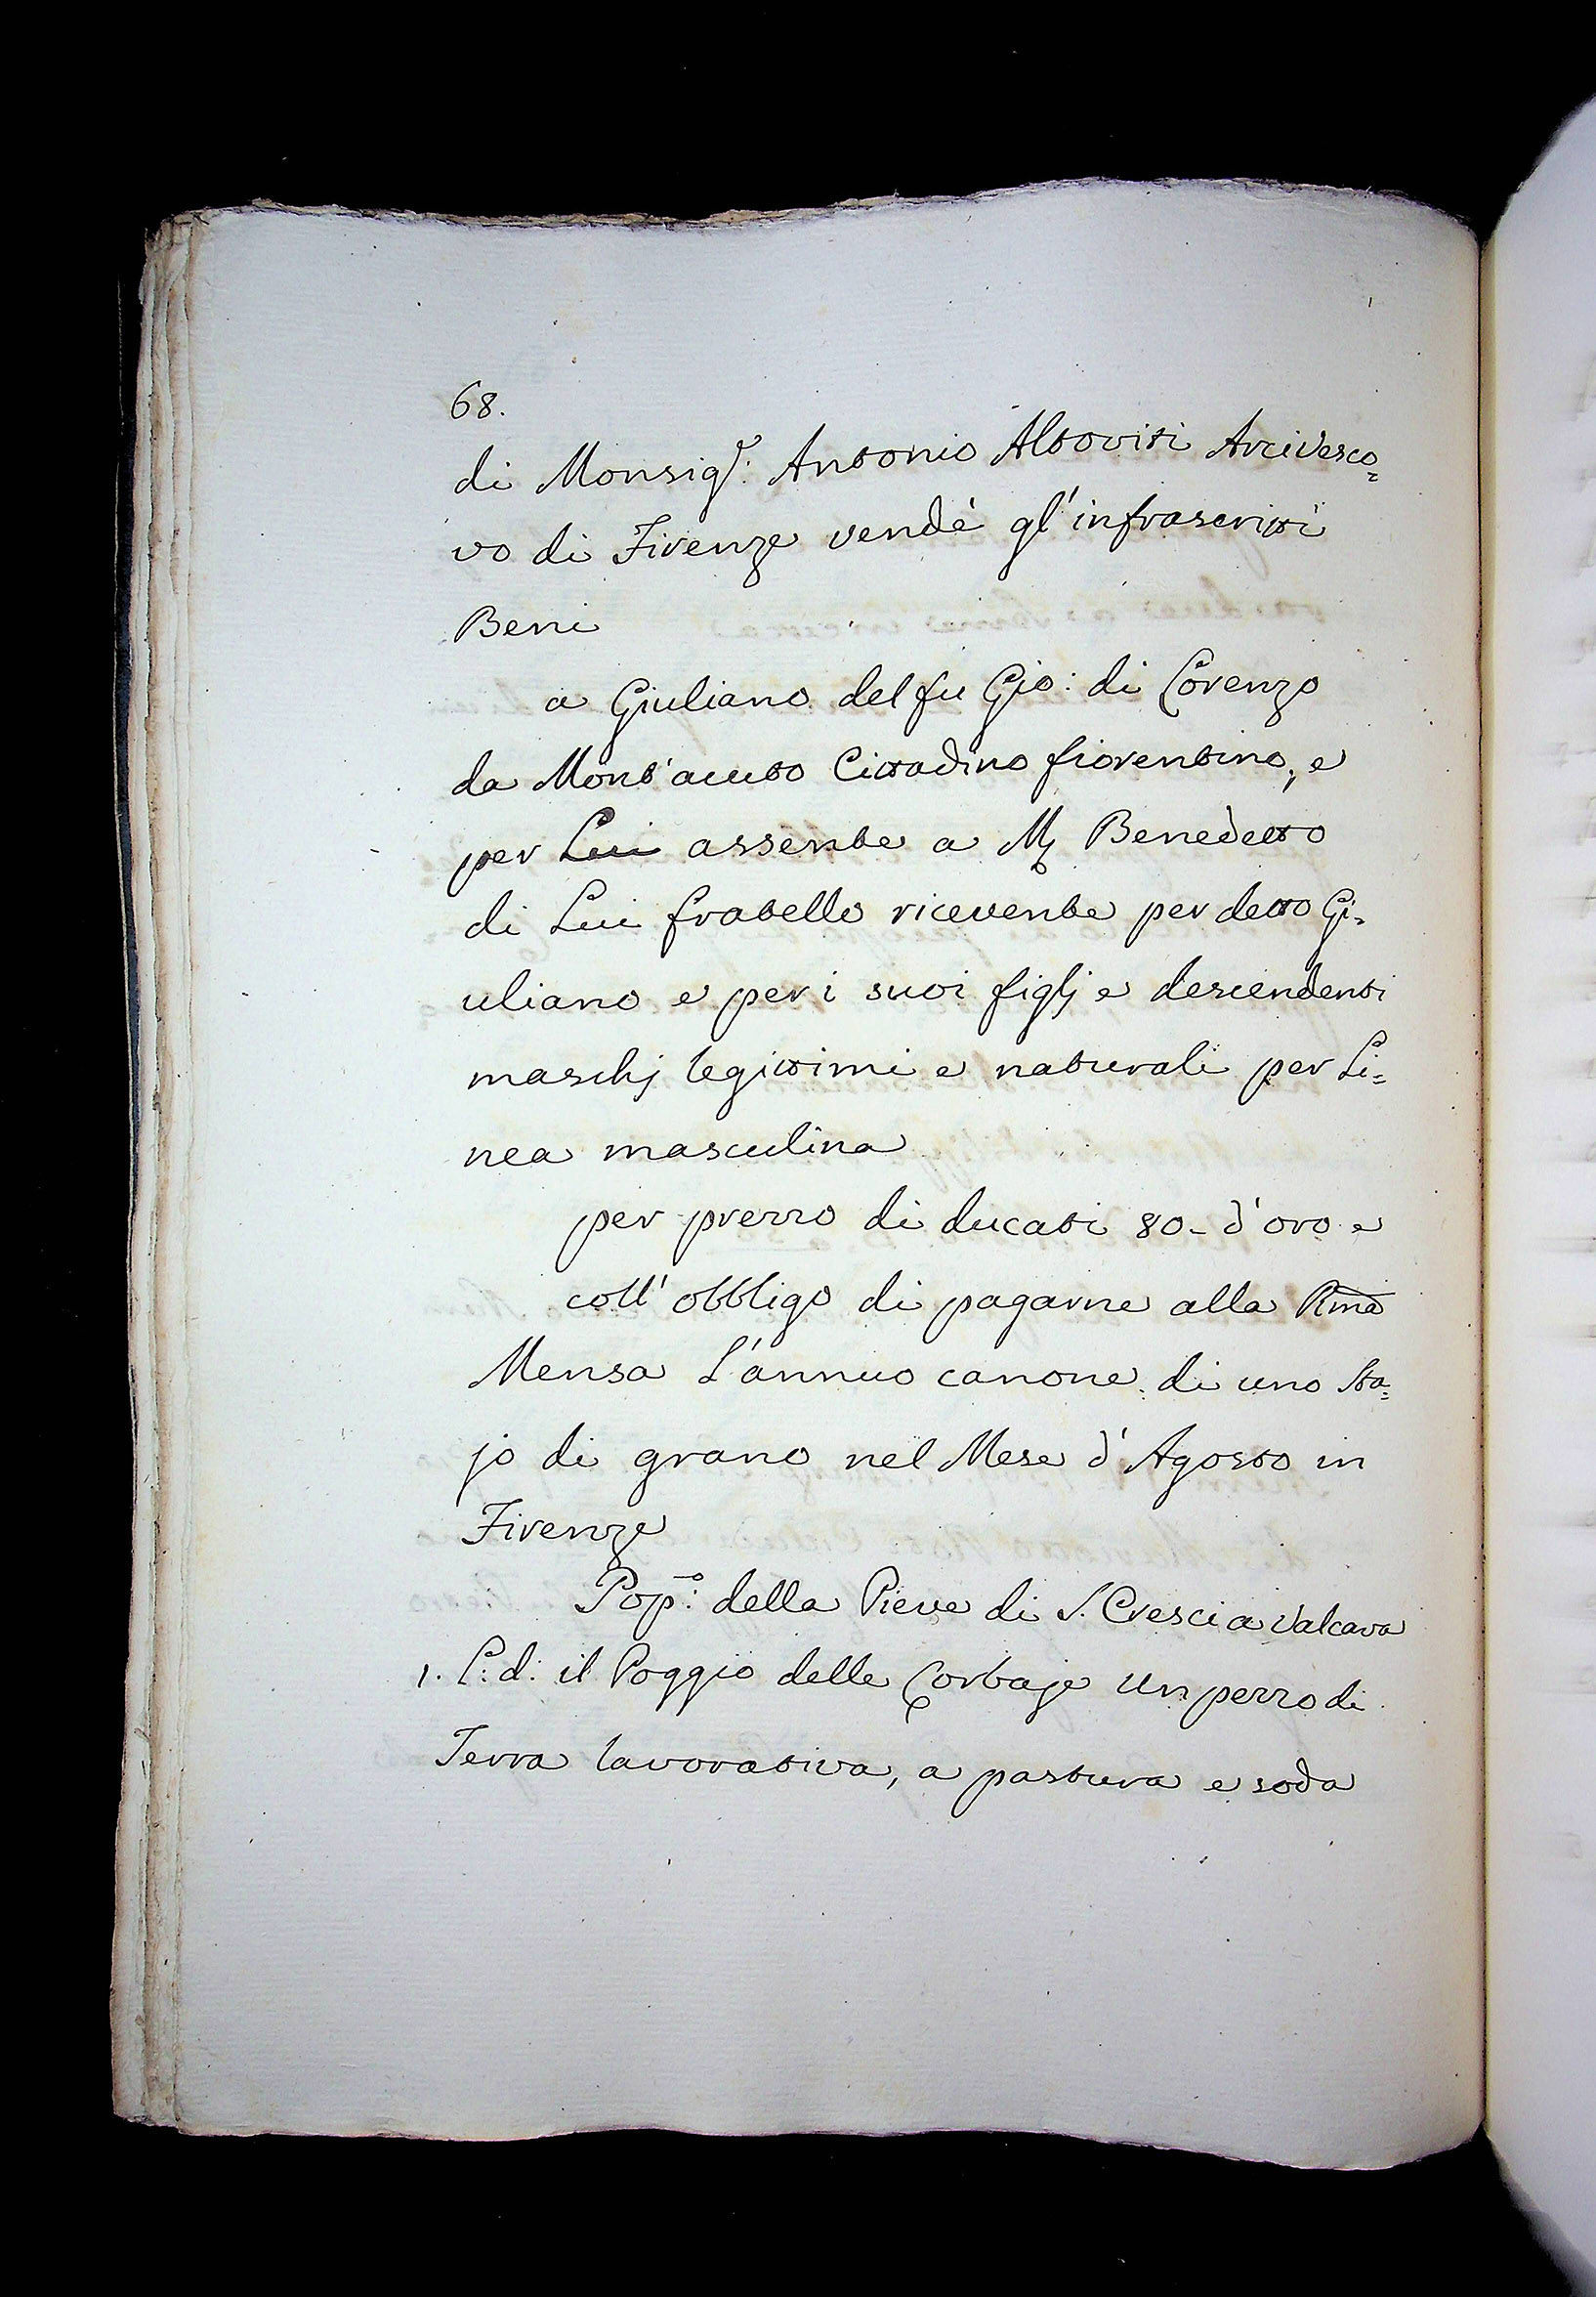 68.
di Monsig.r: Antonio Altoviti Arcivesco=
vo di Firenze vendè gl'infrascritti
Beni
a Giuliano del fu Gio: di Lorenzo
da Mont'acuto Cittadino fiorentino, e
per Lui assente a M. Benedetto
di Lui fratello ricevente per detto Gi=
uliano e per i suoi figlj e descendenti
maschj legittimi e naturali per Li=
nea masculina
per prezzo di ducati 80 - d'oro e
coll' obbligo di pagarne alla Rma
Mensa L'annuo canone di uno Sta=
jo di grano nel Mese d'Agosto in
Firenze
Pop.o: della Pieve di S. Cresci a Valcava
1. L: d: il Poggio delle Corbaje Un pezzo di
Terra lavorativa, a pastura e soda